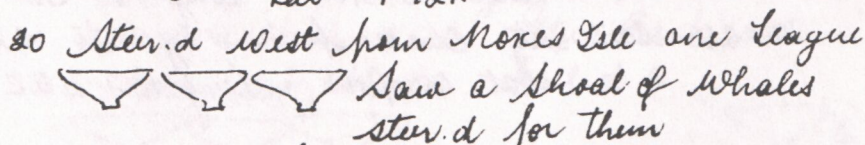 20 Steer.d West from Noxes Isle one League
Saw a Shoal of Whales
steer.d for them